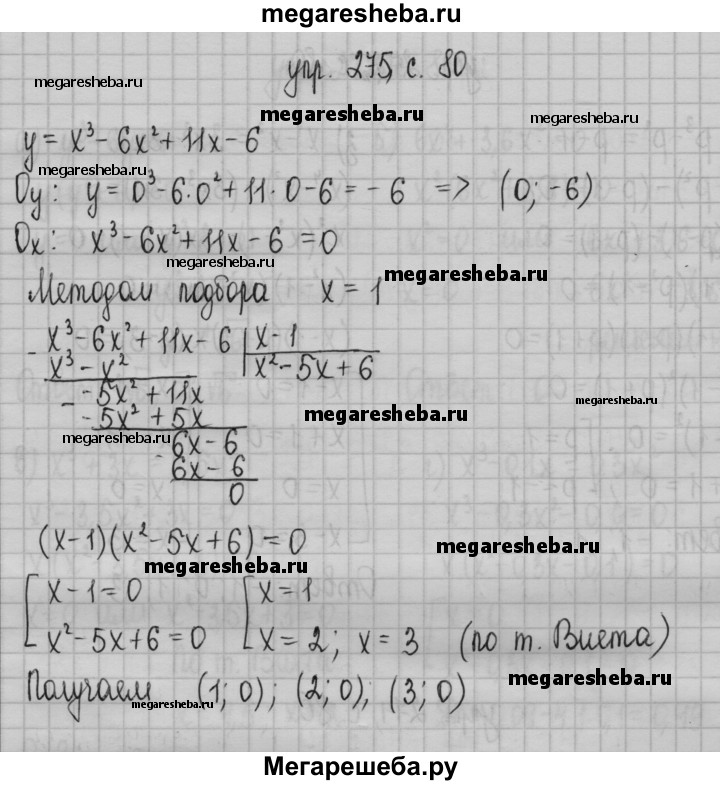 megaresheba.ru
упр. 275, с. 80
megaresheba.ru
megaresheba.ru
megaresheba.ru
y = x³ - 6x² + 11x - 6
megaresheba.ru
Oy: y = 0³ - 6·0² + 11·0 - 6 = - 6 => (0; -6)
Ox: x³ - 6x² + 11x - 6 = 0
megaresheba.ru
Методом подбора x = 1
megaresheba.ru
- x³ - 6x² + 11x - 6 | x - 1
x³ - x² | x² - 5x + 6
- -5x² + 11x
- 5x² + 5x
megaresheba.ru
megaresheba.ru
megaresheba.ru
- 6x - 6
6x - 6
0
(x-1)(x² - 5x + 6) = 0
megaresheba.ru
megaresheba.ru
[ x - 1 = 0 [ x = 1
x² - 5x + 6 = 0 x = 2; x = 3 (по т. Виета)
Получаем (1; 0); (2; 0); (3; 0)
megaresheba.ru
megaresheba.ru
Мегарешеба.ру